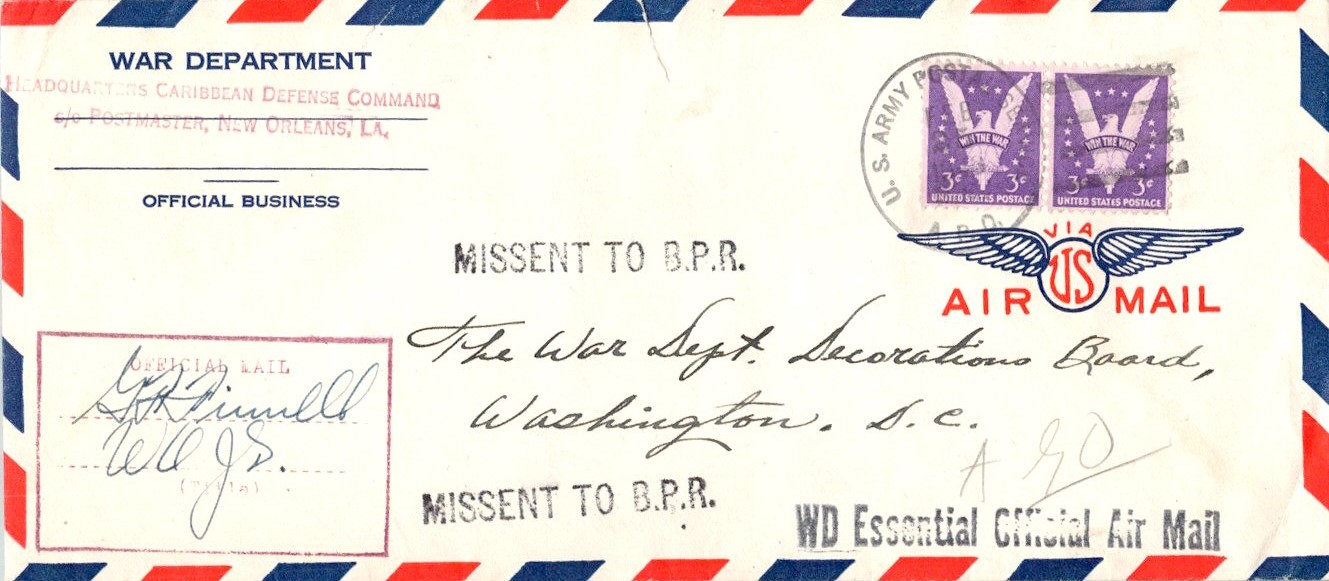 WAR DEPARTMENT
HEADQUARTERS CARIBBEAN DEFENSE COMMAND
c/o POSTMASTER, NEW ORLEANS, LA.
OFFICIAL BUSINESS
U. S. ARMY POSTAL
A. P. O.
WIN THE WAR
3¢ 3¢
UNITED STATES POSTAGE
WIN THE WAR
3¢ 3¢
UNITED STATES POSTAGE
VIA
US
AIR MAIL
MISSENT TO B.P.R.
The War Dept. Decorations Board,
Washington. D. C.
A G O
OFFICIAL MAIL
WO JG.
(Title)
MISSENT TO B.P.R.
WD Essential Official Air Mail